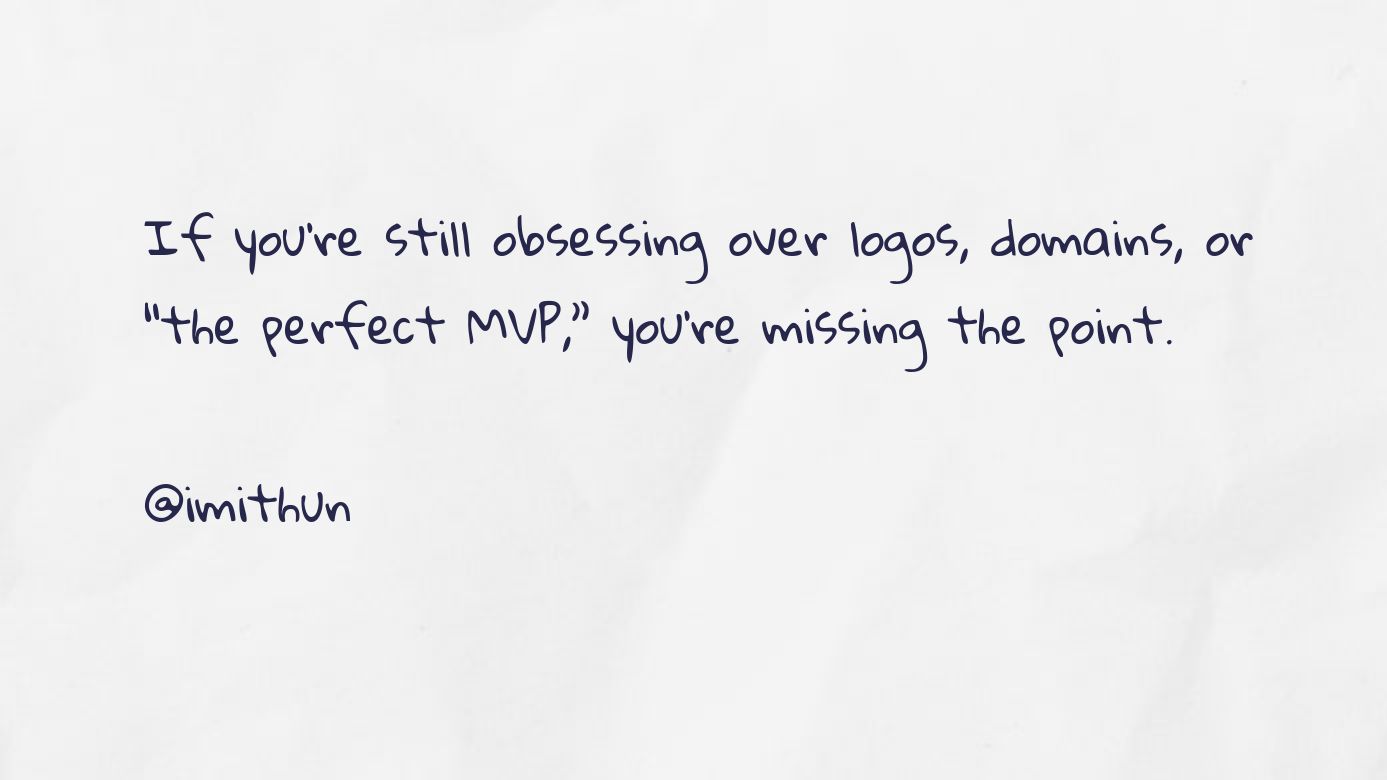 If you're still obsessing over logos, domains, or
“the perfect MVP,” you're missing the point.
@imithun